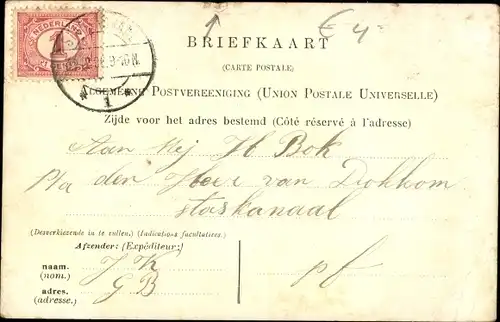 € 4-
NEDERLAND
1
BRIEFKAART
(CARTE POSTALE)
ALGEMEENE POSTVEREENIGING (UNION POSTALE UNIVERSELLE)
Zijde voor het adres bestemd (Côté réservé à l'adresse)
Aan Mej H Bok
Pta den Heer van Dokkom
Staskanaal
(Desverkiezende in te vullen.) (Indications facultatives.)
Afzender: (Expéditeur:)
naam. J K
(nom.)
adres. G B
(adresse.)
pf